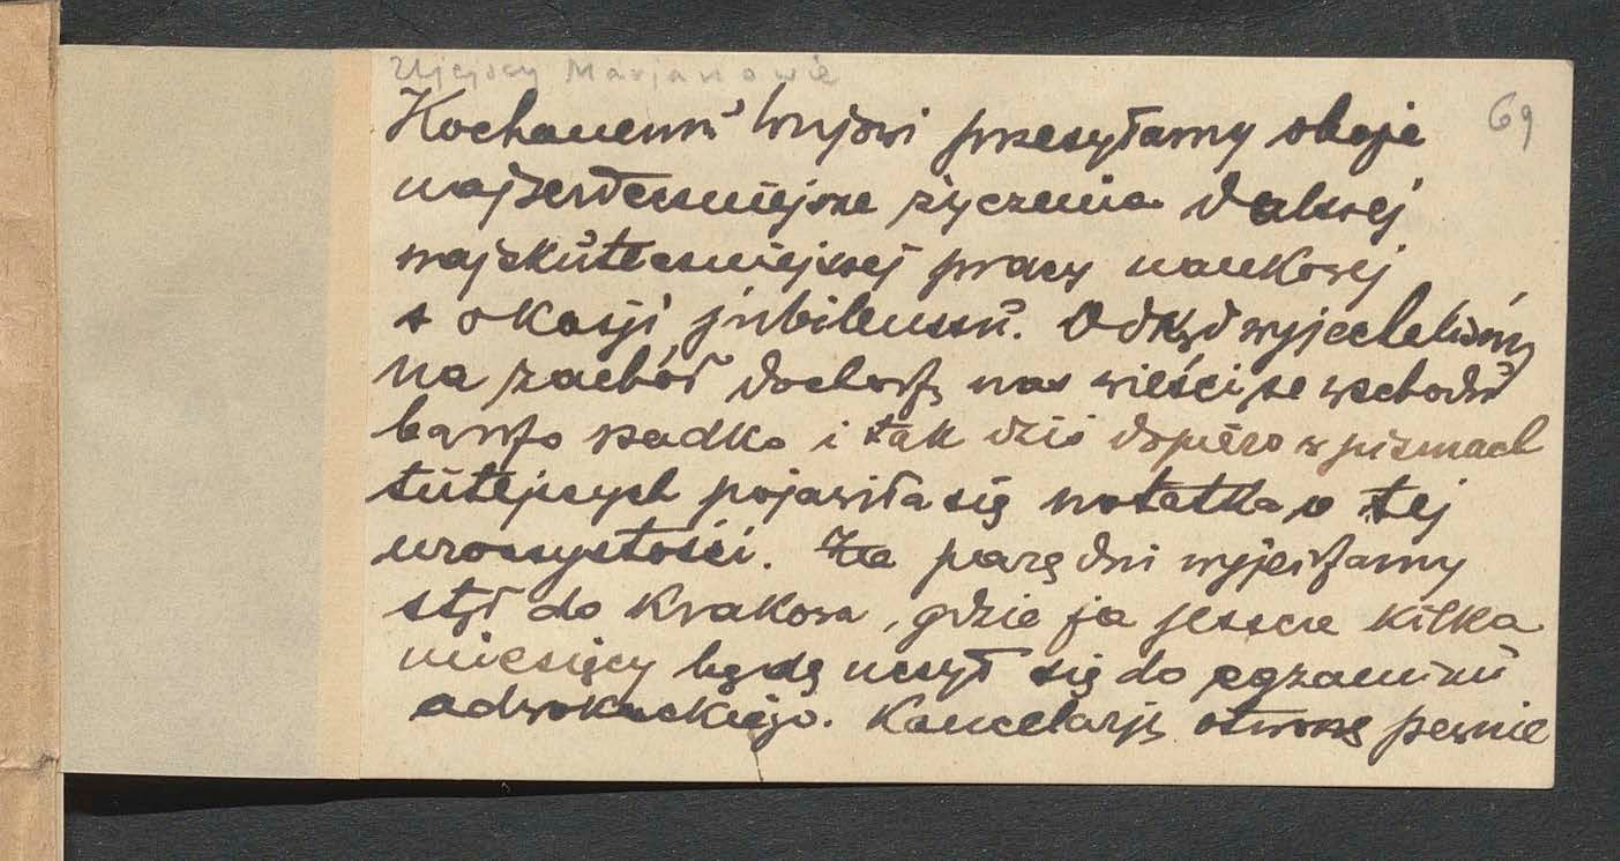 Ujejscy Marjanowie
69
Kochanemu Wujowi przesyłamy oboje
najserdeczniejsze życzenia dalszej
najskuteczniejszej pracy naukowej
z okazji jubileuszu. Odkąd wyjechaliśmy
na zachód dochodzą nas wieści ze wschodu
bardzo rzadko i tak dziś dopiero w pismach
tutejszych pojawiła się notatka o tej
uroczystości. Za parę dni wyjeżdżamy
stąd do Krakowa, gdzie ja jeszcze kilka
miesięcy będę uczył się do egzaminu
adwokackiego. Kancelarję otworzę pewnie